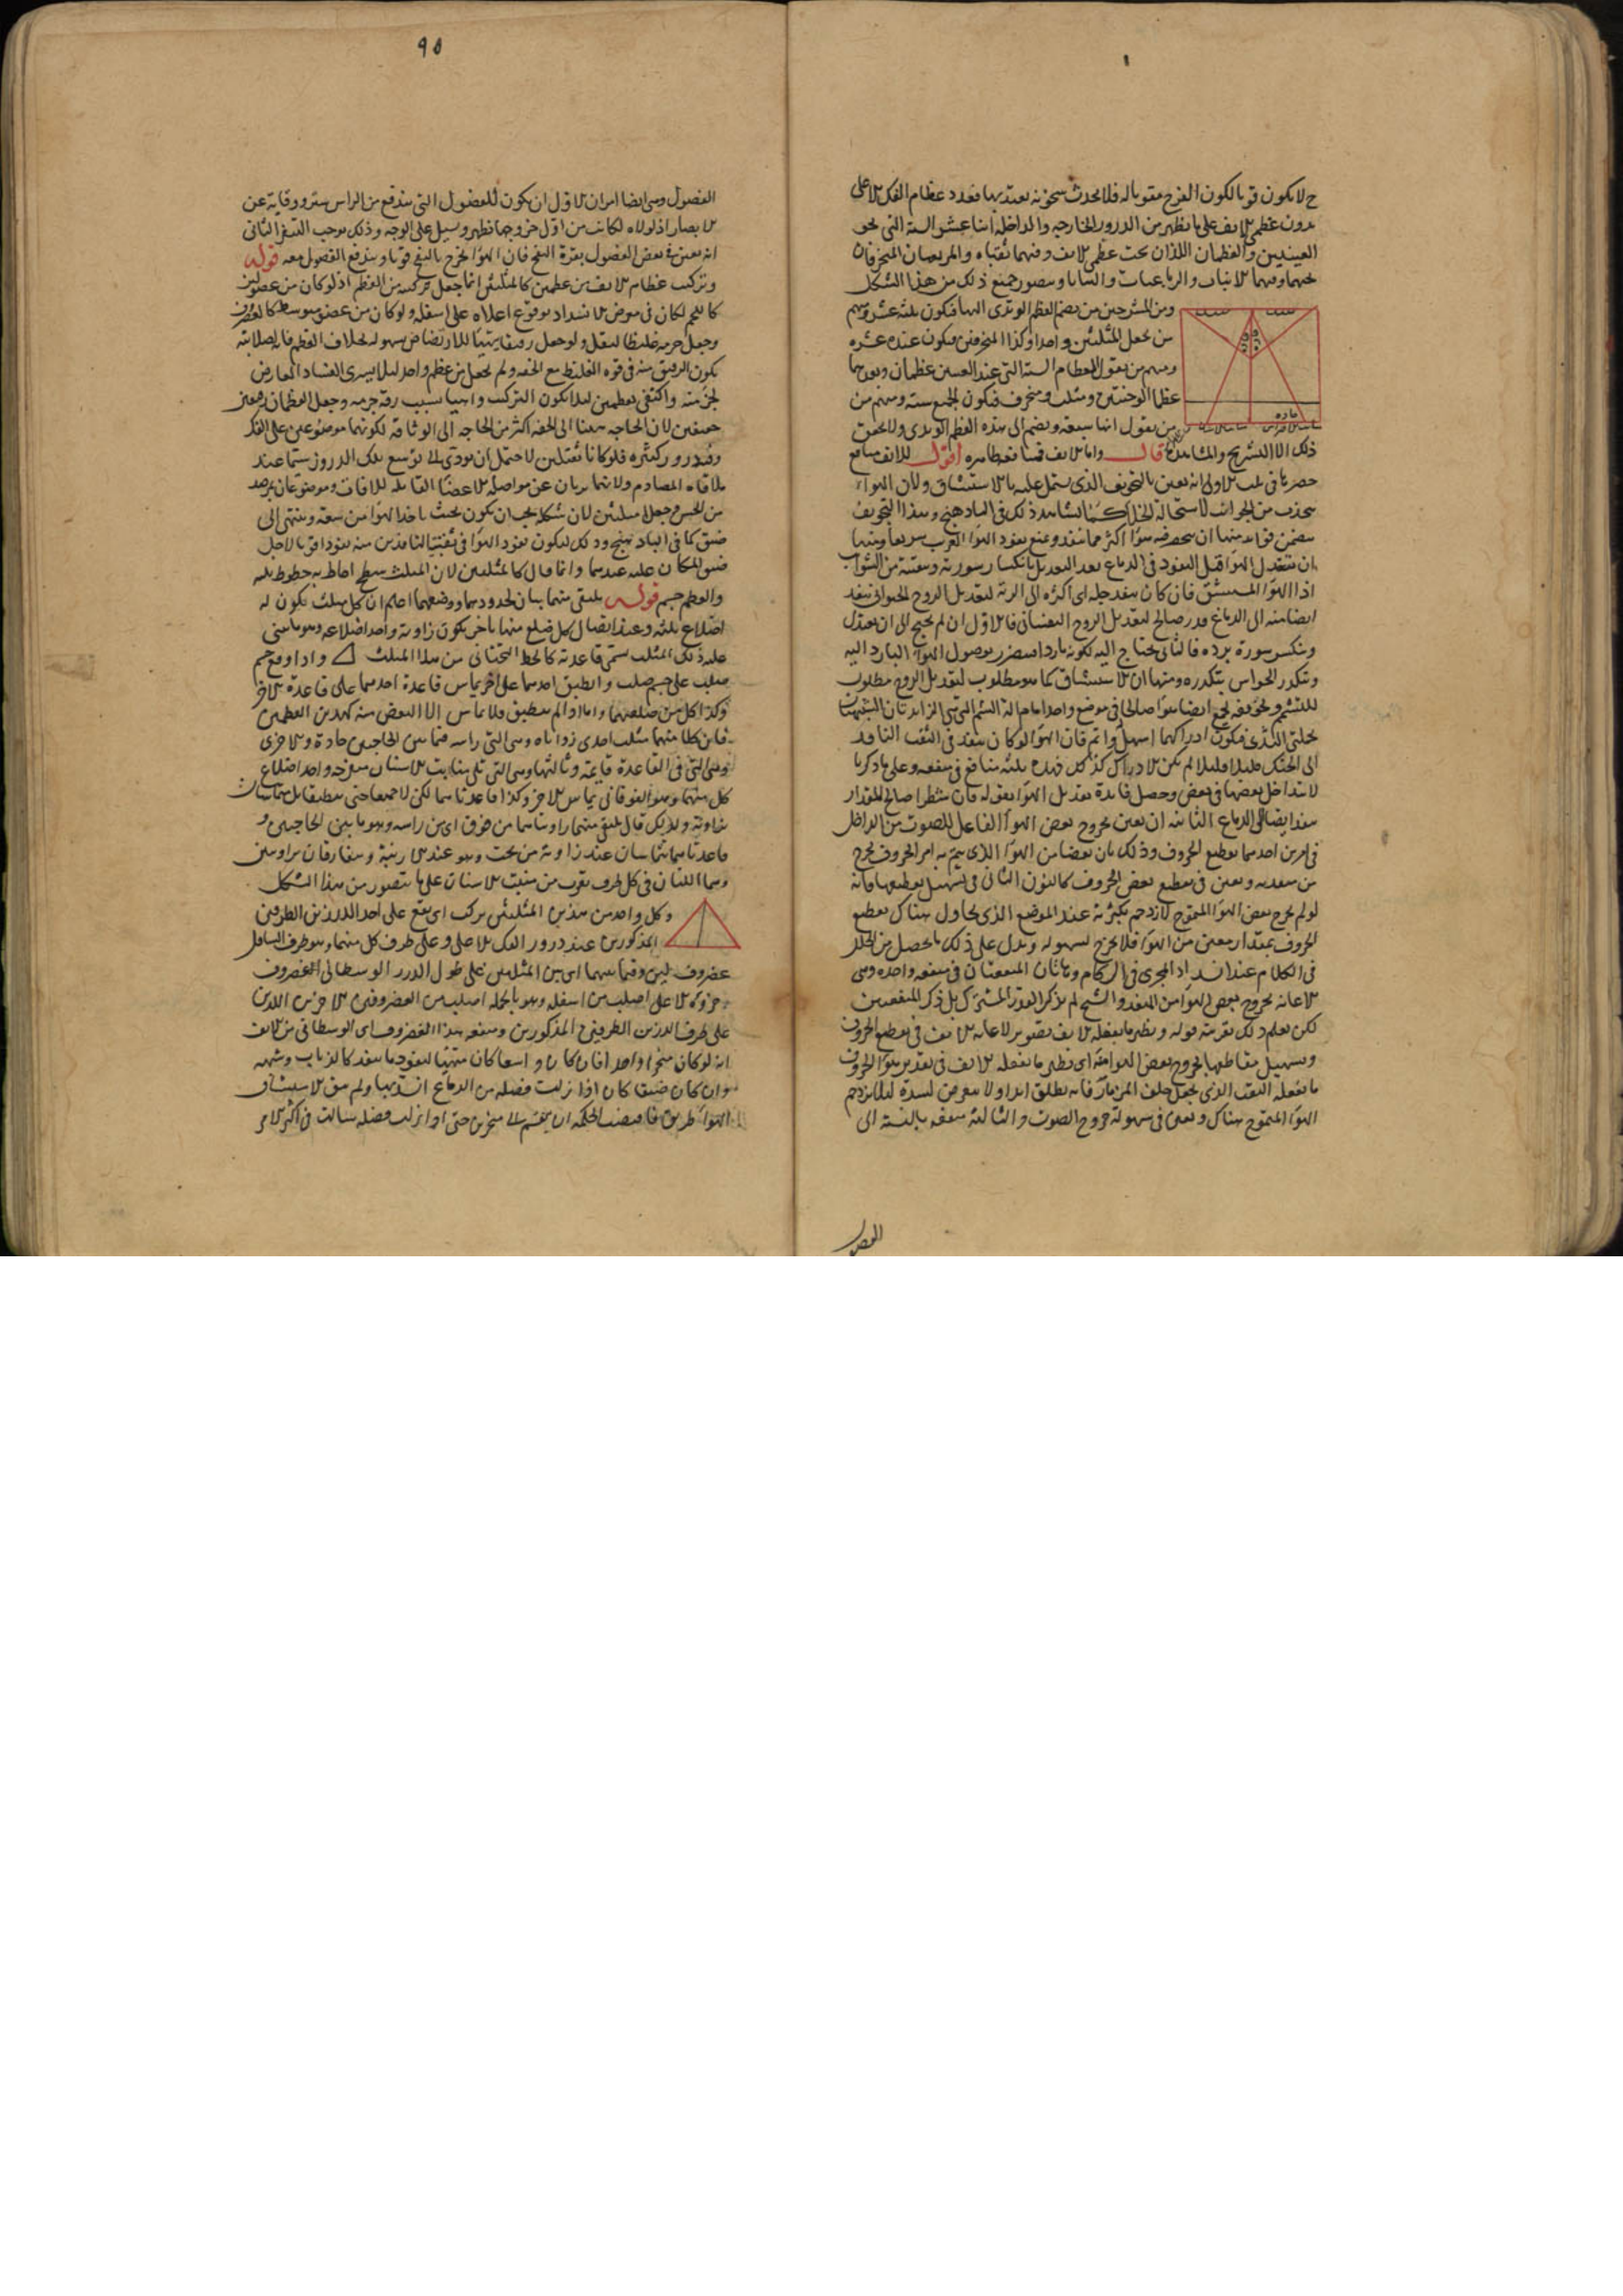 ح لا يكون قويا لكون الفرج مقوية له فلا يحدث سخونة يعتد بها فعدد عظام الفك الاعلى
بدون عظمى الانف على ما يظهر من الدروز الخارجية والداخلة اثنا عشر الستة التى نحو
العينين والعظمان اللذان تحت عظمى الانف وفيهما ثقباه والمربعان المنحرفان
تحتهما وفيهما الانياب والرباعيات والثنايا ويتصور جميع ذلك من هذا الشكل
ومن المشرحين من يضم العظم الوتدى اليها فتكون ثلثة عشر ومنهم
من يجعل المثلثين واحدا وكذا المنحرفين فيكون عنده عشرة
ومنهم من يقول العظام الستة التى عند العينين عظمان وبعدهما
عظما الوجنتين ومثلث ومنحرف فيكون الجميع ستة ومنهم من
من يقول انها سبعة ويضم الى هذه العظم الوتدى ولا يحقق
ذلك الا التشريح والمشاهدة قال واما الانف فمنافعه ظاهرة اقول للانف منافع
حصرها فى ثلث الاولى انه يعين بالتجويف الذى يشتمل عليه بالاستنشاق ولان الهواء
ينجذب من الجوانب لاستحالة الخلاء كما نشاهد ذلك فى البادهنج وبهذا التجويف
ان يتعدل الهواء قبل النفوذ فى الدماغ بعد التعديل بانكسار سورته وتنقيته من الشوائب
اذ الهواء المستنشق فان كان ينفذ جله اى اكثره الى الرئة لتعديل الروح الحيوانى ينفذ
ايضا منه الى الدماغ قدر صالح لتعديل الروح النفسانى فالاول ان لم يحتج الى ان يعتدل
وينكسر سورة برده فالثانى يحتاج اليه لكونه باردا يتضرر بوصول الهواء البارد اليه
وتتكدر الحواس بتكدره ومنها ان الاستنشاق كما هو مطلوب لتعديل الروح مطلوب
للتشمم وتجويفه يجمع ايضا هواء صالحا فى موضع واحد امام آلة الشم التى هى الزائدتان الشبيهتان
بحلمتى الثدى فيكون ادراكهما اسهل واتم فان الهواء لو كان ينفذ فى الثقب النافذ
الى الحنك قليلا قليلا لم يكن الادراك كذلك فهذه ثلثة منافع فى منفعة وعلى ما ذكرنا
لا يتداخل بعضها فى بعض وحصل فائدة تعديل الهواء بقوله فان شطرا صالح المقدار
ينفذ ايضا الى الدماغ الثانية ان يعين بخروج بعض الهواء الفاعل للصوت من الداخل
فى امرين احدهما تقطيع الحروف وذلك بان بعضا من الهواء الذى يتم به امر الحروف يخرج
من منفذيه ويعين فى تقطيع بعض الحروف كالنون الثانى فى تسهيل تقطيعها فانه
لو لم يخرج بعض الهواء المتموج لازدحم بكثرته عند الموضع الذى يحاول هناك تقطيع
الحروف بمقدار معين من الهواء فلا يخرج بسهولة ويدل على ذلك ما يحصل من الخلل
فى الكلام عند انسداد المجرى فى الزكام وهاتان المنفعتان فى منفعة واحدة وهى
الاعانة بخروج بعض الهواء من المنفذ والشيخ لم يذكر القدر المشترك بل ذكر المنفعتين
لكن يعلم ذلك بقرينة قوله ونظير ما يفعله الانف
وتسهيل تقاطيعها بخروج بعض الهواء منه اى نظير ما يفعله الانف فى تقدير هواء الحروف
ما يفعله الثقب الذى يجعل خلف المزمار فانه يطلق ابدا ولا يتعرض لسده لئلا يزدحم
الهواء المتموج هناك ويعين فى سهولة خروج الصوت والثالثة منفعة بالنسبة الى
الفضول
٩٥
الفضول وهى ايضا امران الاول ان يكون للفضول التى تندفع من الراس ستر ووقاية عن
الابصار اذ لولاه لكانت من اول خروجها تظهر وتسيل على الوجه وذلك يوجب التنفر الثانى
انه يعين فى نفض الفضول بقوة النفخ فان الهواء يخرج بالنفخ قويا وتندفع الفضول معه قوله
وتركيب عظام الانف من عظمين كالمثلثين انما جعل تركيبه من العظم اذ لو كان من عضو لين
كاللحم لكان فى معرض الانسداد بوقوع اعلاه على اسفله ولو كان من عضو متوسط كالغضروف
وجعل جرمه غليظا لثقل ولو جعل رقيقا يتهيأ للارتضاض بسهولة بخلاف العظم فانه لصلابته
يكون الرقيق منه فى قوة الغليظ مع الخفة ولم يجعل من عظم واحد لئلا يسرى الفساد العارض
لجزئه واكتفى بعظمين لئلا يكون التركيب واهيا بسبب رقة جرمه وجعل العظمان رقيقين
خفيفين لان الحاجة ههنا الى الخفة اكثر من الحاجة الى الوثاقة لكونهما موضوعين على الفك
وفيه دروز كثيرة فلو كانا ثقيلين لاحتمل ان يؤدى الى توسع تلك الدروز سيما عند
ملاقاة المصادم ولانهما بريان عن مواصلة الاعضاء القابلة للافات وموضوعان بمرصد
من الحس وجعلا مثلثين لان شكله يجب ان يكون بحيث ياخذ الهواء من سعة وينتهى الى
ضيق كما فى البادهنج وذلك ليكون نفوذ الهواء فى ثقبتيه النافذتين منه نفوذا قويا لاجل
ضيق المكان عليه عندهما وانما قال كالمثلثين لان المثلث سطح احاط به خطوط ثلثة
والعظم جسم قوله يلتقى منهما بيان لحدودهما ووضعهما اعلم ان كل مثلث يكون له
اضلاع ثلثة وعند اتصال كل ضلع منها باخر يكون زاوية واحد اضلاعه وهو ما يبنى
عليه ذلك المثلث يسمى قاعدته كالخط التحتانى من هذا المثلث واذا وقع جسم
مثلث على جسم مثلث وانطبق احدهما على الاخر يماس قاعدة احدهما على قاعدة الاخر
وكذا كل من ضلعيهما واما اذا لم ينطبق فلا يماس الا البعض منه كهذين العظمين
فان كلا منهما مثلث احدى زواياه وهى التى راسه فيما بين الحاجبين حادة والاخرى
وهى التى فى القاعدة قائمة وثالثها وهى التى تلى منابت الاسنان منفرجة واحد اضلاع
كل منهما وهو الفوقانى يماس الاخر وكذا قاعدتاهما لكن لا جميعا حتى ينطبقا بل يتماسان
بزاوية ولذلك قال يلتقى منهما زاويتاهما من فوق اى من راسه وهو ما بين الحاجبين و
قاعدتاهما تتماسان عند زاوية من تحت وهو عند الارنبة وتفارقان بزاويتين
وهما اللتان فى كل طرف بقرب من منبت الاسنان على ما يتصور من هذا الشكل
وكل واحد من هذين المثلثين يركب اى يقع على احد الدرزين الطرفين
المذكورين عند دروز الفك الاعلى وعلى طرف كل منهما وهو طرف السافل
غضروف لين وفيما بينهما اى بين المثلثين على طول الدرز الوسطانى الغضروف
جزؤه الاعلى اصلب من اسفله وهو بالجملة اصلب من الغضروفين الاخرين اللذين
على طرف الدرزين الطرفين المذكورين ومنفعة هذا الغضروف اى الوسطانى من الانف
انه لو كان منخرا واحدا فان كان واسعا كان متهيئا لنفوذ ما ينفذ كالذباب وشبهه
وان كان ضيقا كان اذا نزلت فضلة من الدماغ انسد بها ولم يبق لاستنشاق
الهواء طريق فاقتضت الحكمة ان يقسم الى منخرين حتى اذا نزلت فضلة سالت فى اكثر الامر